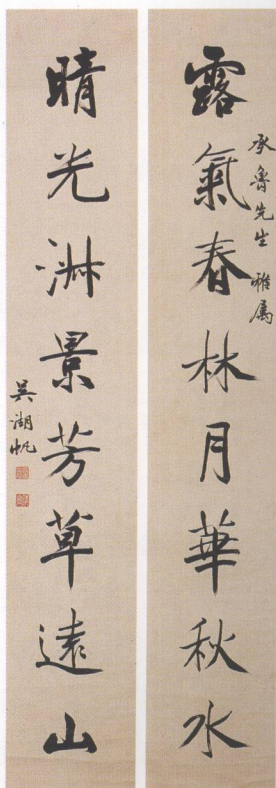 露氣春林月華秋水
承魯先生雅属
晴光淋景芳草遠山
吳湖帆